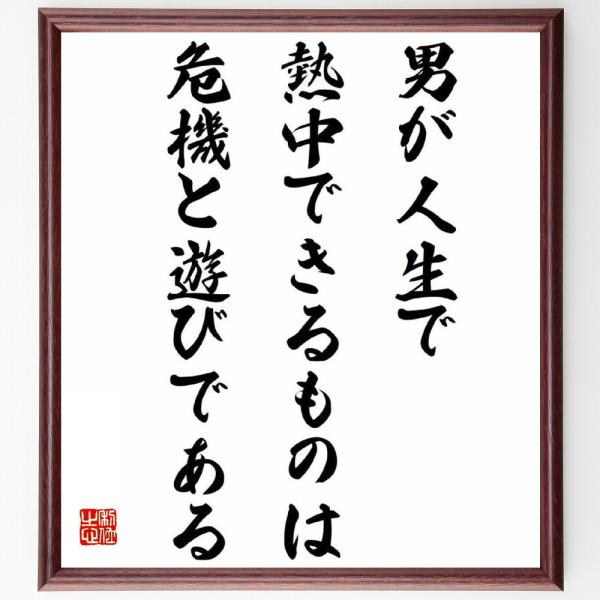 男が人生で
熱中できるものは
危機と遊びである